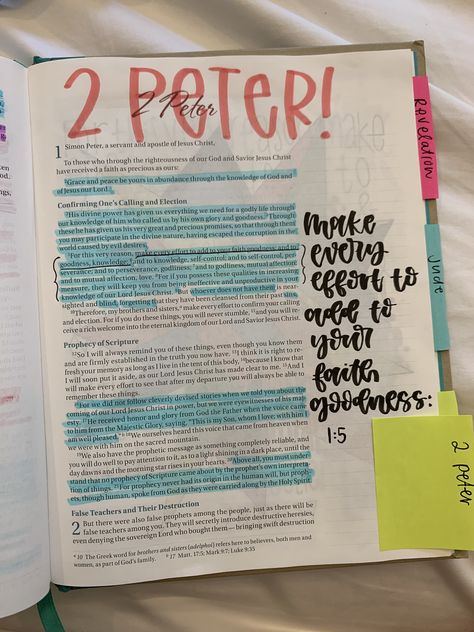 2 PETER!
2 Peter
1 Simon Peter, a servant and apostle of Jesus Christ,
To those who through the righteousness of our God and Savior Jesus Christ
have received a faith as precious as ours:
2Grace and peace be yours in abundance through the knowledge of God and
of Jesus our Lord.
Confirming One's Calling and Election
3His divine power has given us everything we need for a godly life through
our knowledge of him who called us by his own glory and goodness. 4Through
these he has given us his very great and precious promises, so that through them
you may participate in the divine nature, having escaped the corruption in the
world caused by evil desires.
5For this very reason, make every effort to add to your faith goodness; and to
goodness, knowledge; 6and to knowledge, self-control; and to self-control, per-
severance; and to perseverance, godliness; 7and to godliness, mutual affection;
and to mutual affection, love. 8For if you possess these qualities in increasing
measure, they will keep you from being ineffective and unproductive in your
knowledge of our Lord Jesus Christ. 9But whoever does not have them is near-
sighted and blind, forgetting that they have been cleansed from their past sins.
10Therefore, my brothers and sisters, a make every effort to confirm your calling
and election. For if you do these things, you will never stumble, 11and you will re-
ceive a rich welcome into the eternal kingdom of our Lord and Savior Jesus Christ.
Prophecy of Scripture
12So I will always remind you of these things, even though you know them
and are firmly established in the truth you now have. 13I think it is right to re-
fresh your memory as long as I live in the tent of this body, 14because I know that
I will soon put it aside, as our Lord Jesus Christ has made clear to me. 15And I
will make every effort to see that after my departure you will always be able to
remember these things.
16For we did not follow cleverly devised stories when we told you about the
coming of our Lord Jesus Christ in power, but we were eyewitnesses of his maj-
esty. 17He received honor and glory from God the Father when the voice came
to him from the Majestic Glory, saying, "This is my Son, whom I love; with him I
am well pleased." 18We ourselves heard this voice that came from heaven when
we were with him on the sacred mountain.
19We also have the prophetic message as something completely reliable, and
you will do well to pay attention to it, as to a light shining in a dark place, until the
day dawns and the morning star rises in your hearts. 20Above all, you must under-
stand that no prophecy of Scripture came about by the prophet's own interpreta-
tion of things. 21For prophecy never had its origin in the human will, but proph-
ets, though human, spoke from God as they were carried along by the Holy Spirit.
False Teachers and Their Destruction
2 But there were also false prophets among the people, just as there will be
false teachers among you. They will secretly introduce destructive heresies,
even denying the sovereign Lord who bought them—bringing swift destruction
a 10 The Greek word for brothers and sisters (adelphoi) refers here to believers, both men and
women, as part of God's family. b 17 Matt. 17:5; Mark 9:7; Luke 9:35
make
every
effort to
add to
your
faith
goodness:
1:5
Revelation
Jude
2 peter